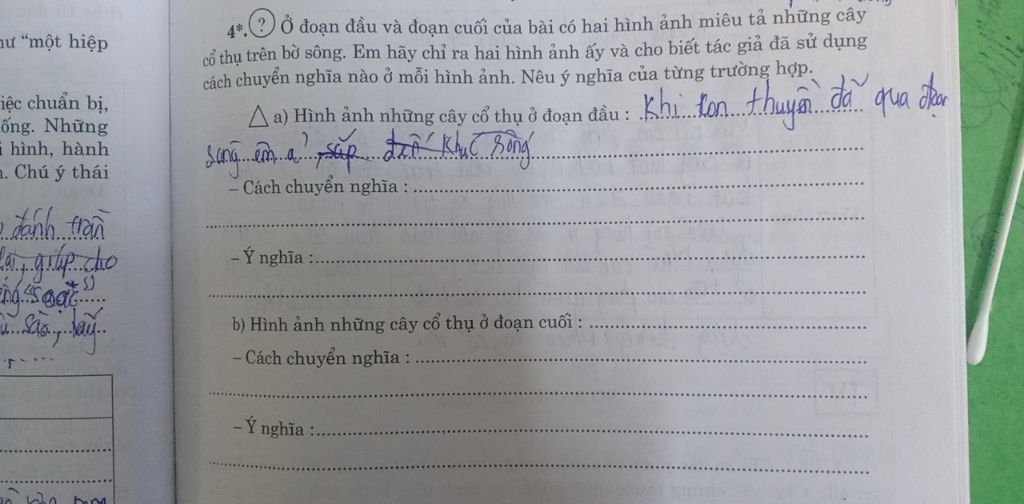 4*. ? Ở đoạn đầu và đoạn cuối của bài có hai hình ảnh miêu tả những cây
cổ thụ trên bờ sông. Em hãy chỉ ra hai hình ảnh ấy và cho biết tác giả đã sử dụng
cách chuyển nghĩa nào ở mỗi hình ảnh. Nêu ý nghĩa của từng trường hợp.
△ a) Hình ảnh những cây cổ thụ ở đoạn đầu : Khi con thuyền đã qua đoạn
sông êm ả, sắp đến khúc sông
– Cách chuyển nghĩa :
– Ý nghĩa :
b) Hình ảnh những cây cổ thụ ở đoạn cuối :
– Cách chuyển nghĩa :
– Ý nghĩa :
ư “một hiệp
iệc chuẩn bị,
ống. Những
i hình, hành
. Chú ý thái
đánh trần
giúp cho
"soạt"
sào, lấy